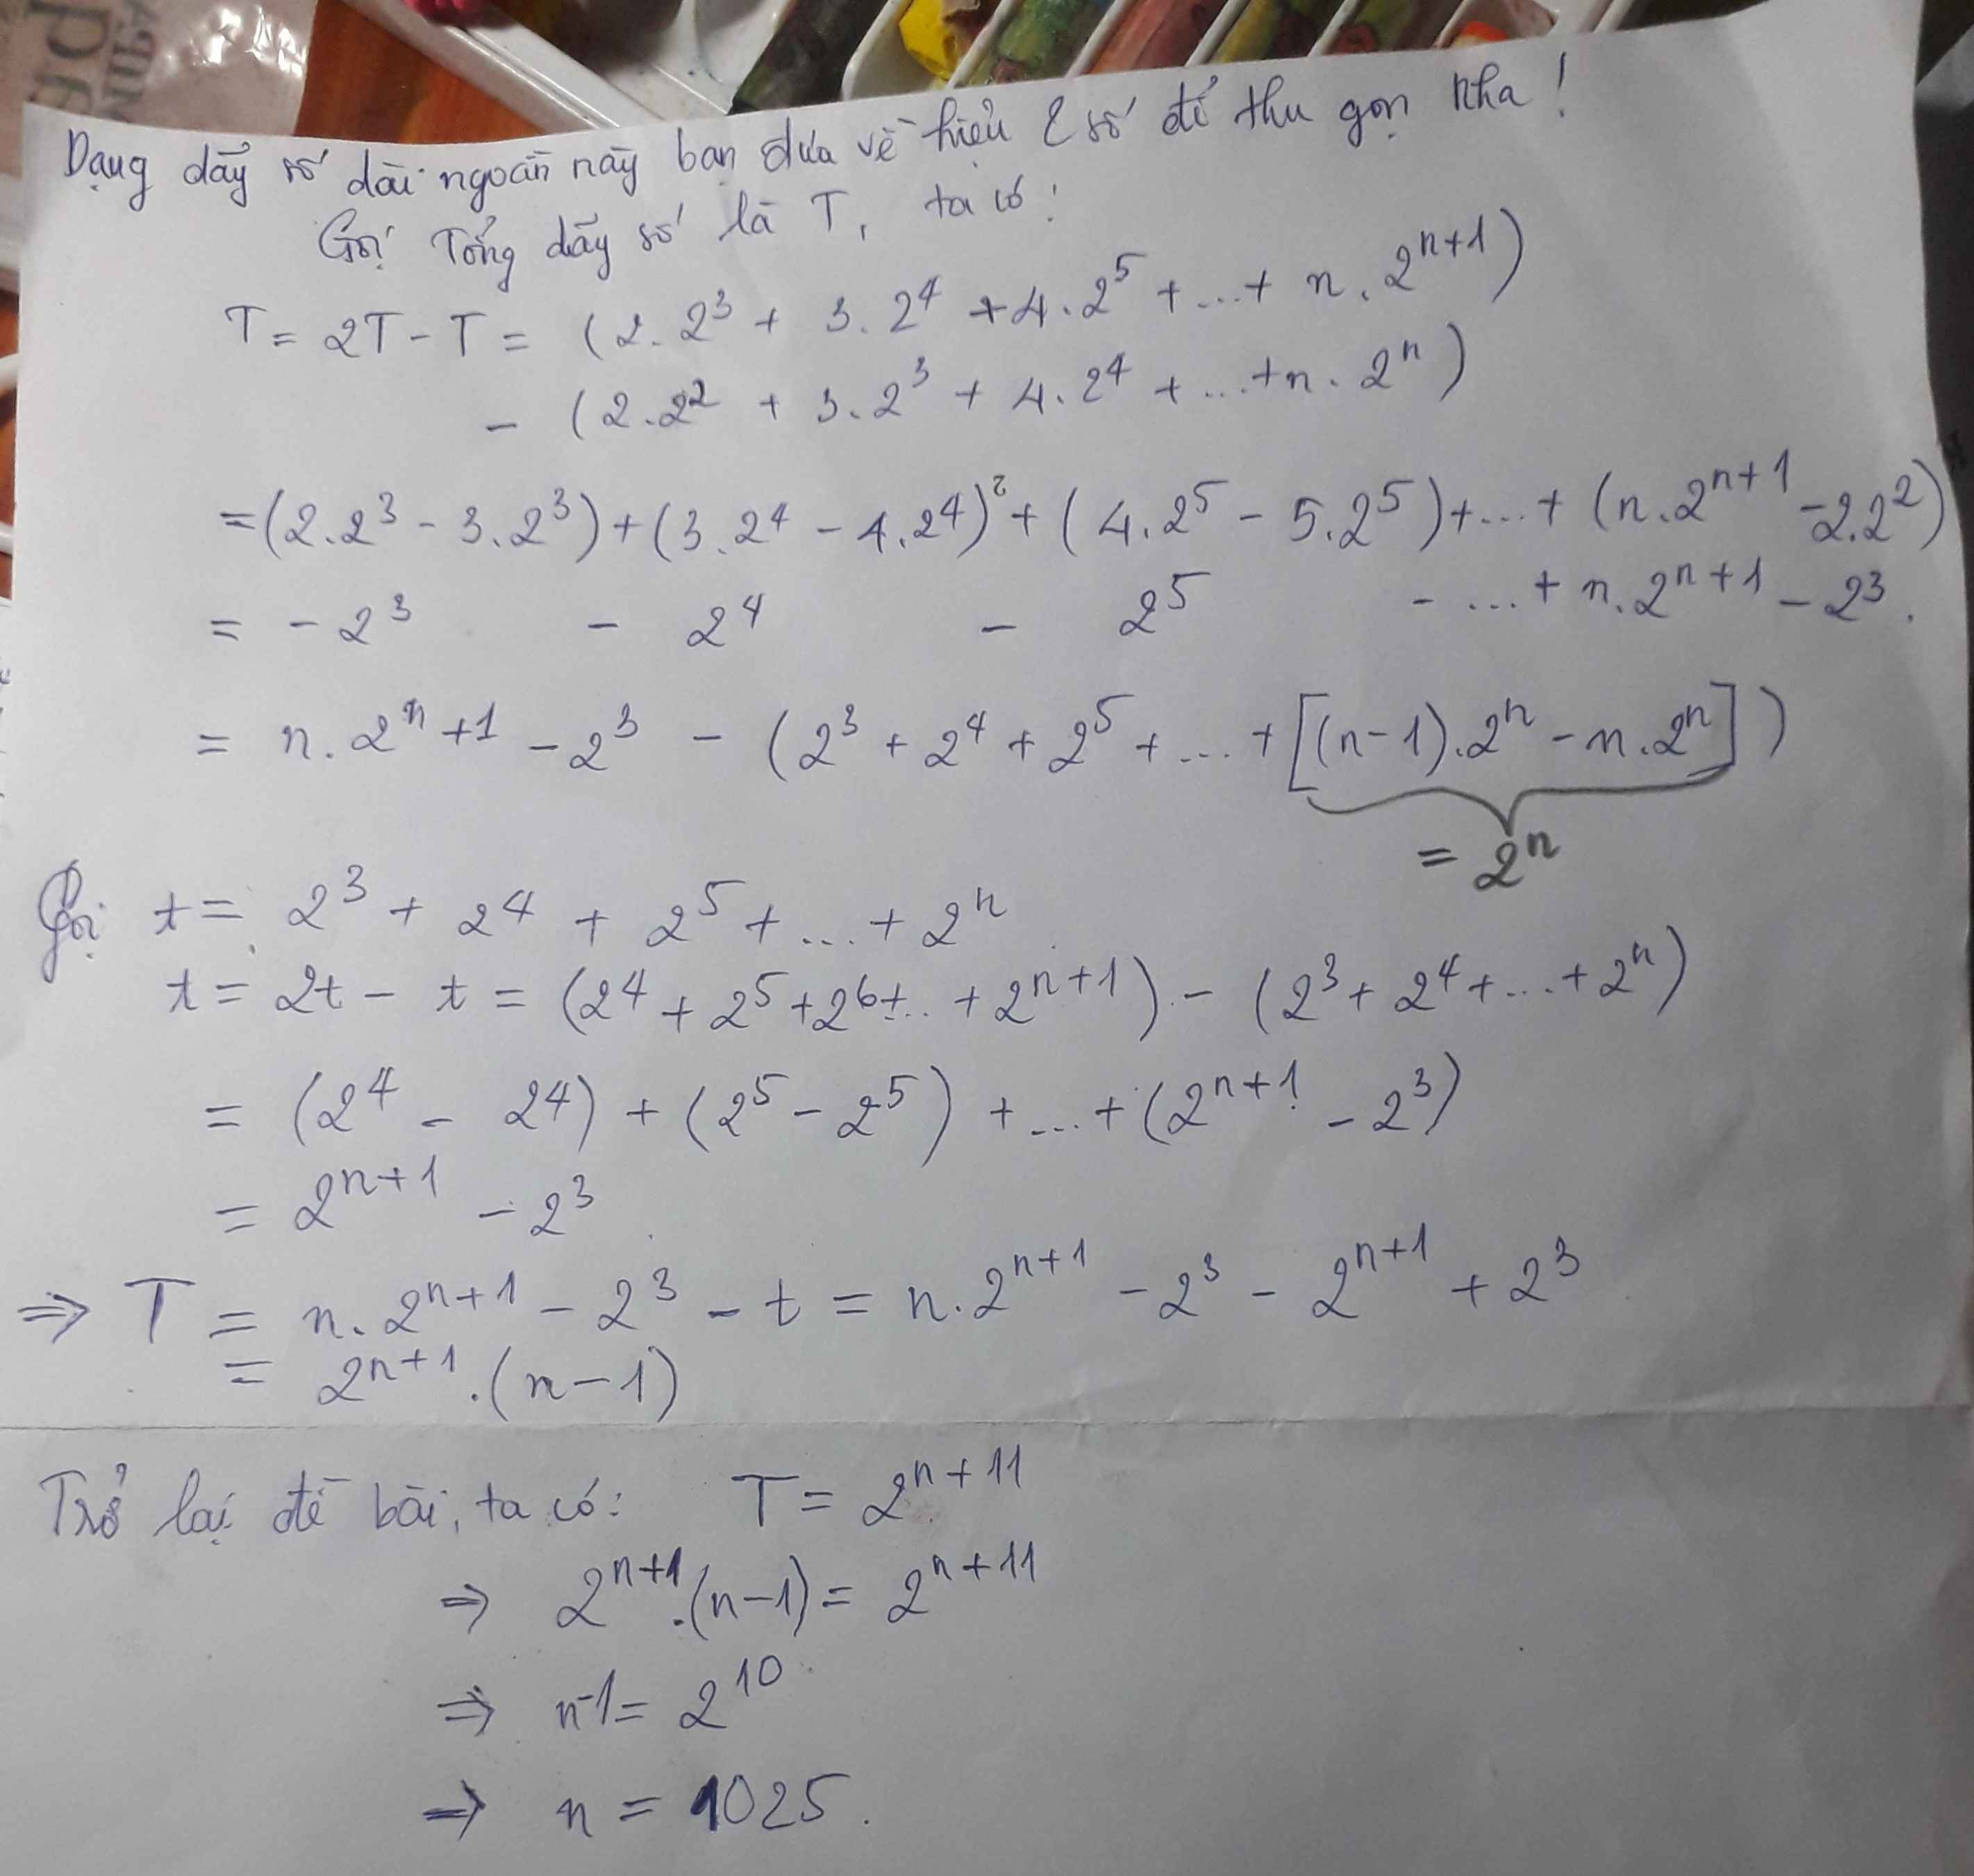 Dạng dãy số dài ngoằn này bạn đưa về hiệu 2 số để thu gọn nha!
Gọi Tổng dãy số là T, ta có:
T = 2T - T = (2.2³ + 3.2⁴ + 4.2⁵ + ... + n.2ⁿ⁺¹)
- (2.2² + 3.2³ + 4.2⁴ + ... + n.2ⁿ)
= (2.2³ - 3.2³) + (3.2⁴ - 4.2⁴) + (4.2⁵ - 5.2⁵) + ... + (n.2ⁿ⁺¹ - 2.2²)
= - 2³ - 2⁴ - 2⁵ - ... + n.2ⁿ⁺¹ - 2³.
= n.2ⁿ⁺¹ - 2³ - (2³ + 2⁴ + 2⁵ + ... + [(n-1).2ⁿ - n.2ⁿ])
= 2ⁿ
Gọi t = 2³ + 2⁴ + 2⁵ + ... + 2ⁿ
t = 2t - t = (2⁴ + 2⁵ + 2⁶ + ... + 2ⁿ⁺¹) - (2³ + 2⁴ + ... + 2ⁿ)
= (2⁴ - 2⁴) + (2⁵ - 2⁵) + ... + (2ⁿ⁺¹ - 2³)
= 2ⁿ⁺¹ - 2³
⇒ T = n.2ⁿ⁺¹ - 2³ - t = n.2ⁿ⁺¹ - 2³ - 2ⁿ⁺¹ + 2³
= 2ⁿ⁺¹.(n-1)
Trở lại đề bài, ta có: T = 2ⁿ⁺¹¹
⇒ 2ⁿ⁺¹.(n-1) = 2ⁿ⁺¹¹
⇒ n-1 = 2¹⁰
⇒ n = 1025.